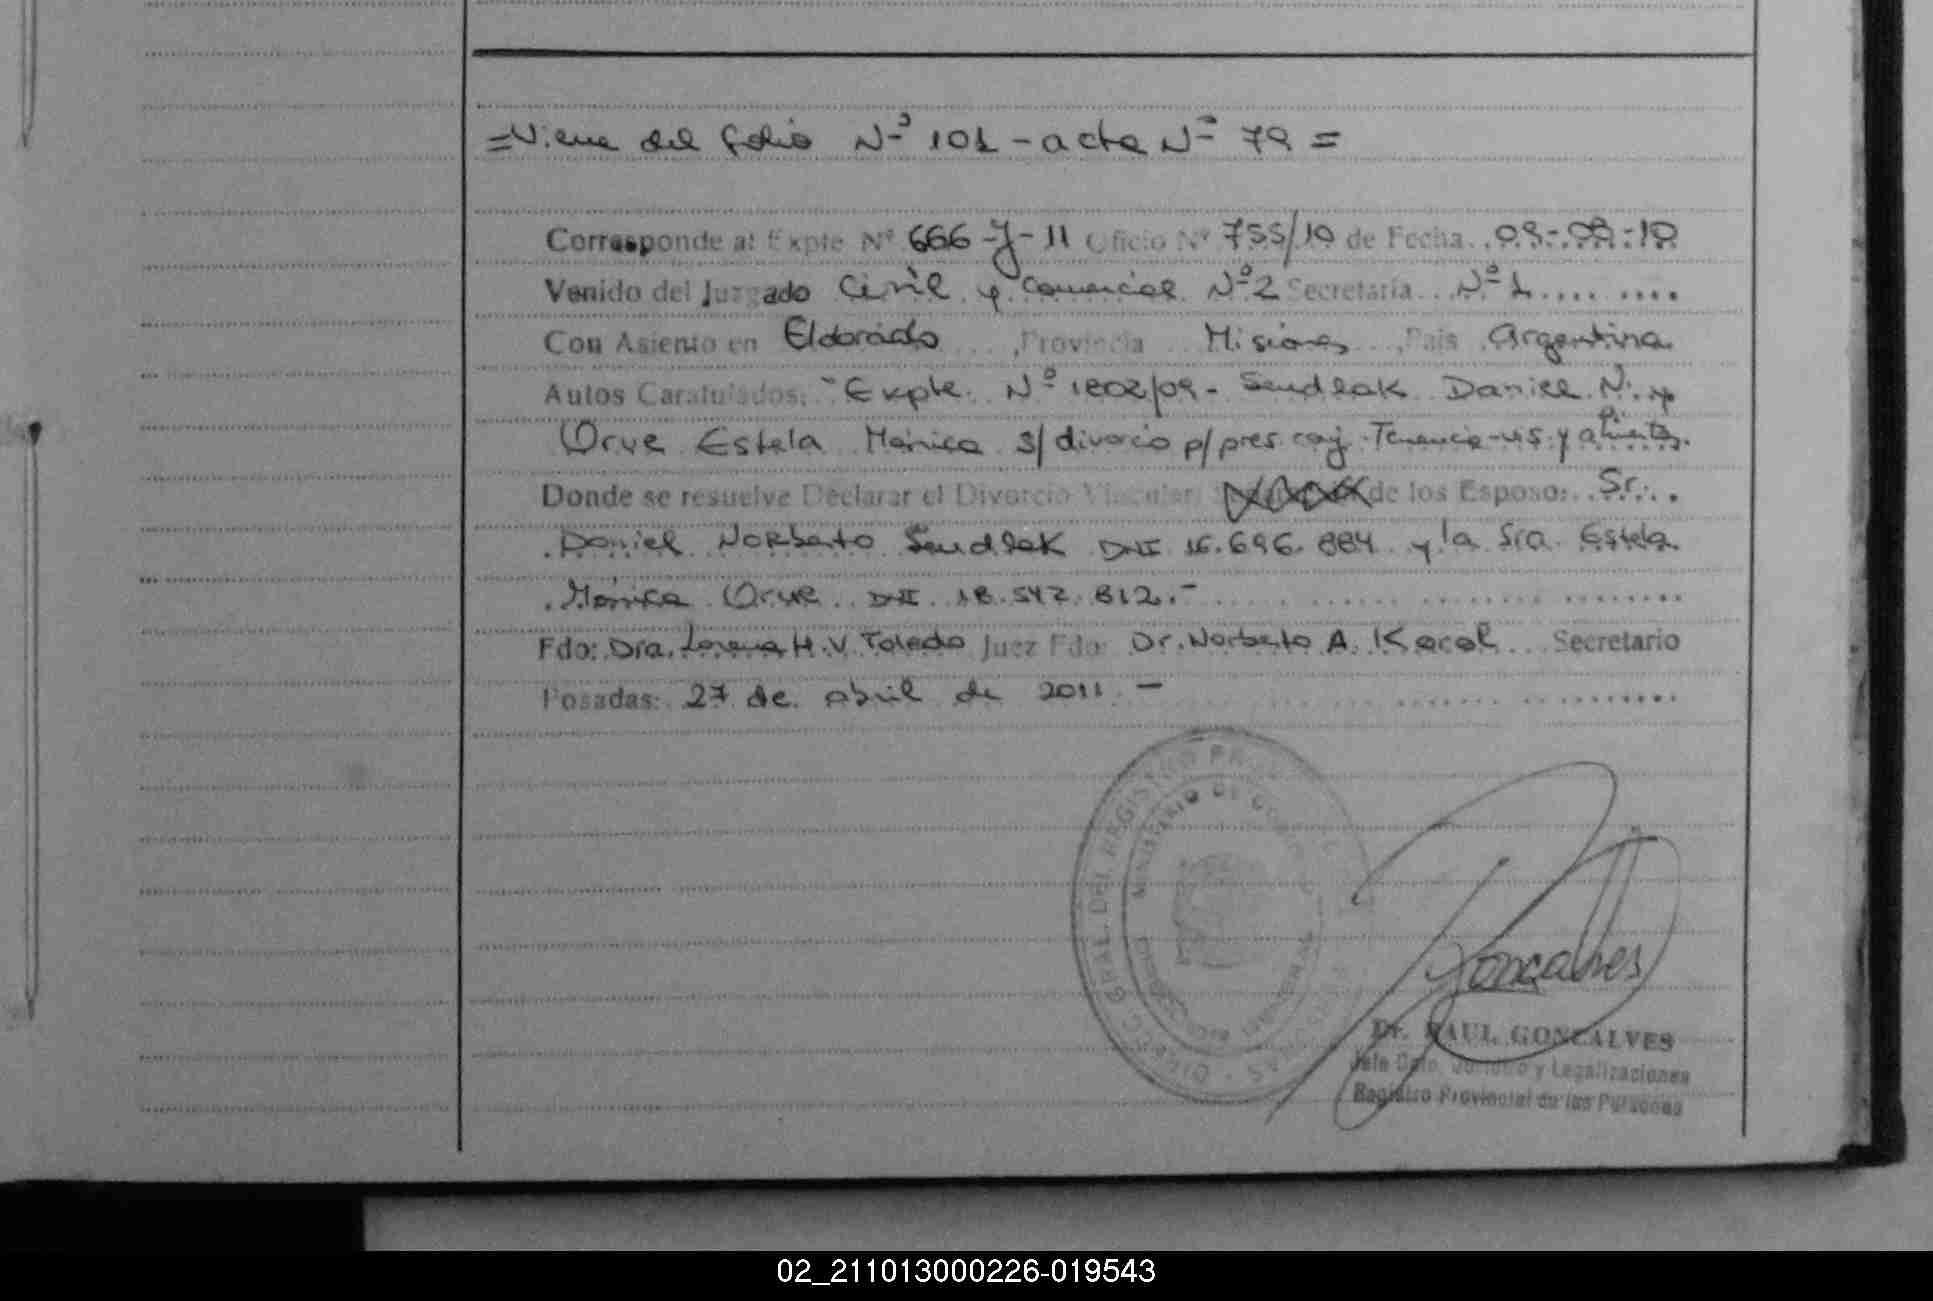 =Viene del folio Nº 101 - acta Nº 79 =
Corresponde al Expte Nº 666-J-11 Oficio Nº 755/10 de Fecha. 09-09-10
Venido del Juzgado Civil y Comercial Nº2 Secretaría Nº 1
Con Asiento en Eldorado, Provincia Misiones, País Argentina
Autos Caratulados: "Expte. Nº 1802/09 - Sendlak Daniel N. y
Orue Estela Mónica s/ divorcio p/ pres. conj. Tenencia - y alimentos.
Donde se resuelve Declarar el Divorcio Vincular de los Esposo: Sr.
Daniel Norberto Sendlak DNI 16.696.884 y la Sra Estela
Mónica Orue DNI 18.542.812.-
Fdo: Dra. Lorena H. V. Toledo Juez Fdo: Dr. Norberto A. Kacal Secretario
Posadas: 27 de abril de 2011. -
DIREC. GRAL. DEL REGISTRO
MINISTERIO DE GOBIERNO
Goncalves
Dr. RAUL GONCALVES
Jefe Dpto. Jurídico y Legalizaciones
Registro Provincial de las Personas
02_211013000226-019543